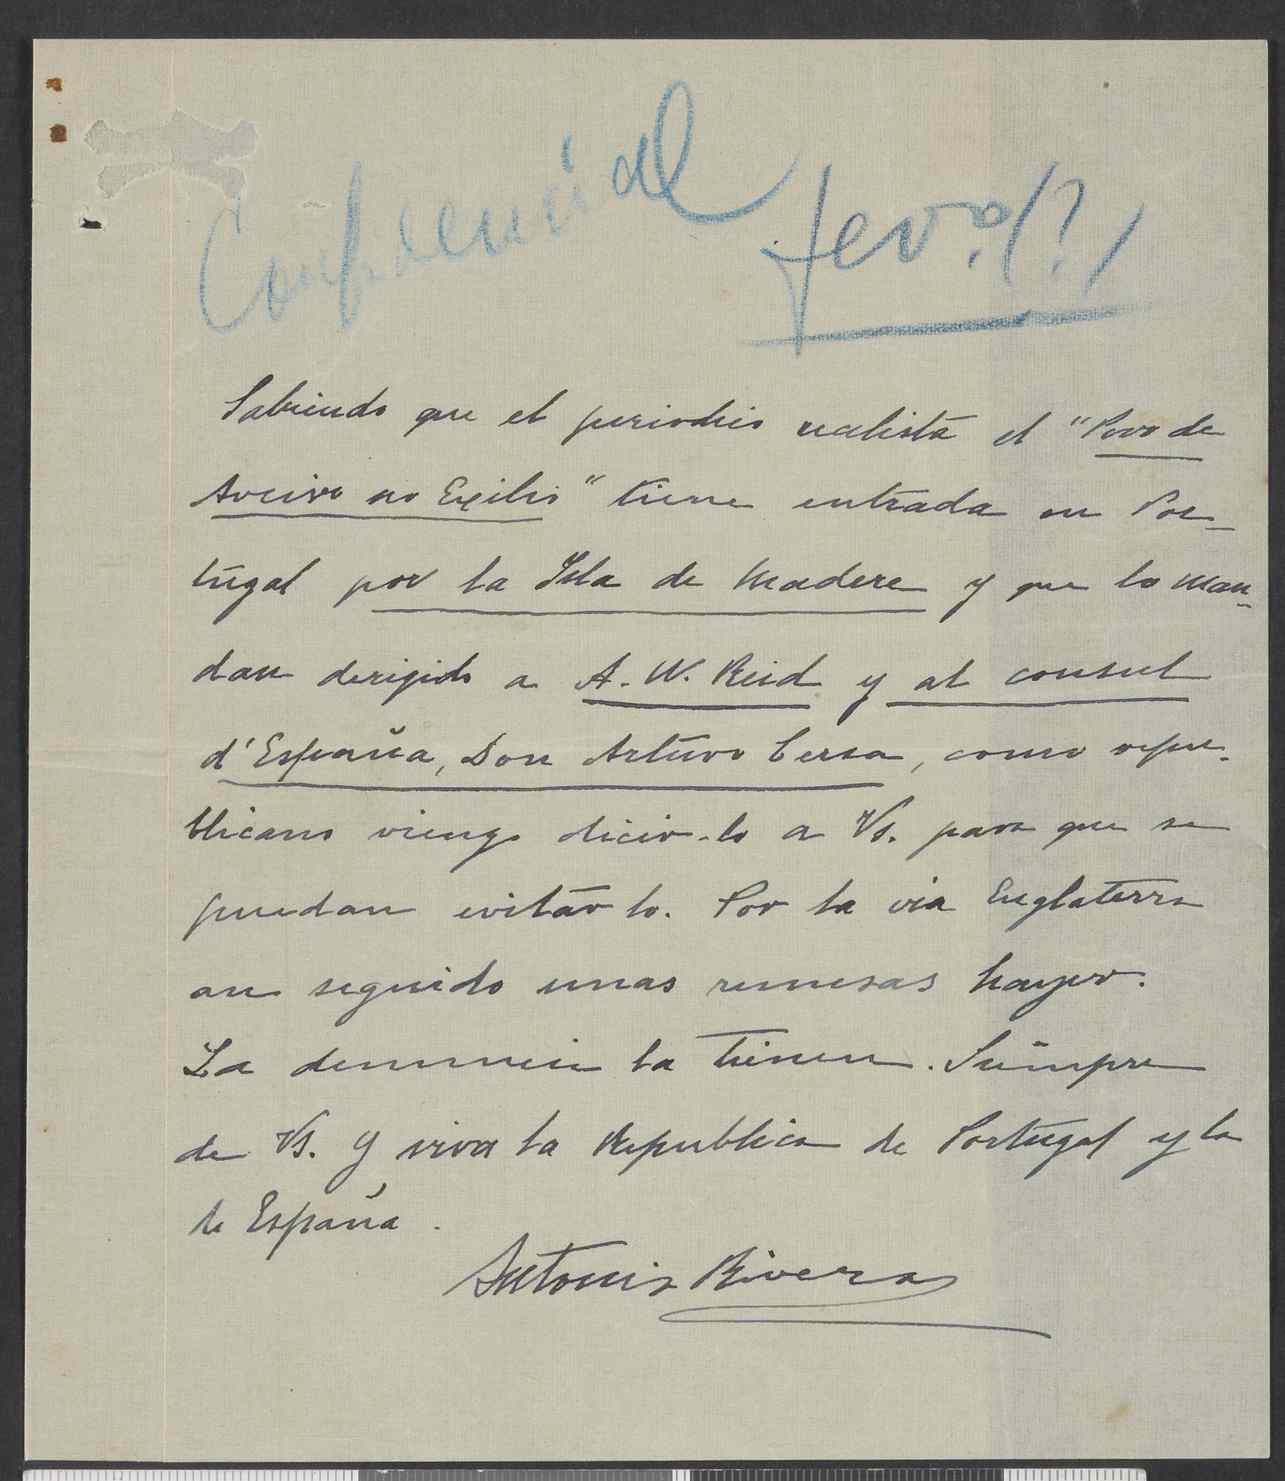 Confidencial
fev.º (?)
Sabiendo que el periodico realista el "Povo de
Aveiro no Exilio" tiene entrada en Por-
tugal por la Isla de Madere y que lo man-
dan derigido a A. W. Reid y al consul
d'España, Don Arturo, como repu-
blicano viengo dicir-lo a Vs. para que se
puedan evitar lo. Por la via Englaterra
an seguido unas remesas hayer.
La denuncia la tienen. Siempre
de Vs. y viva la Republica de Portugal y la
de España.
Antonio Rivera